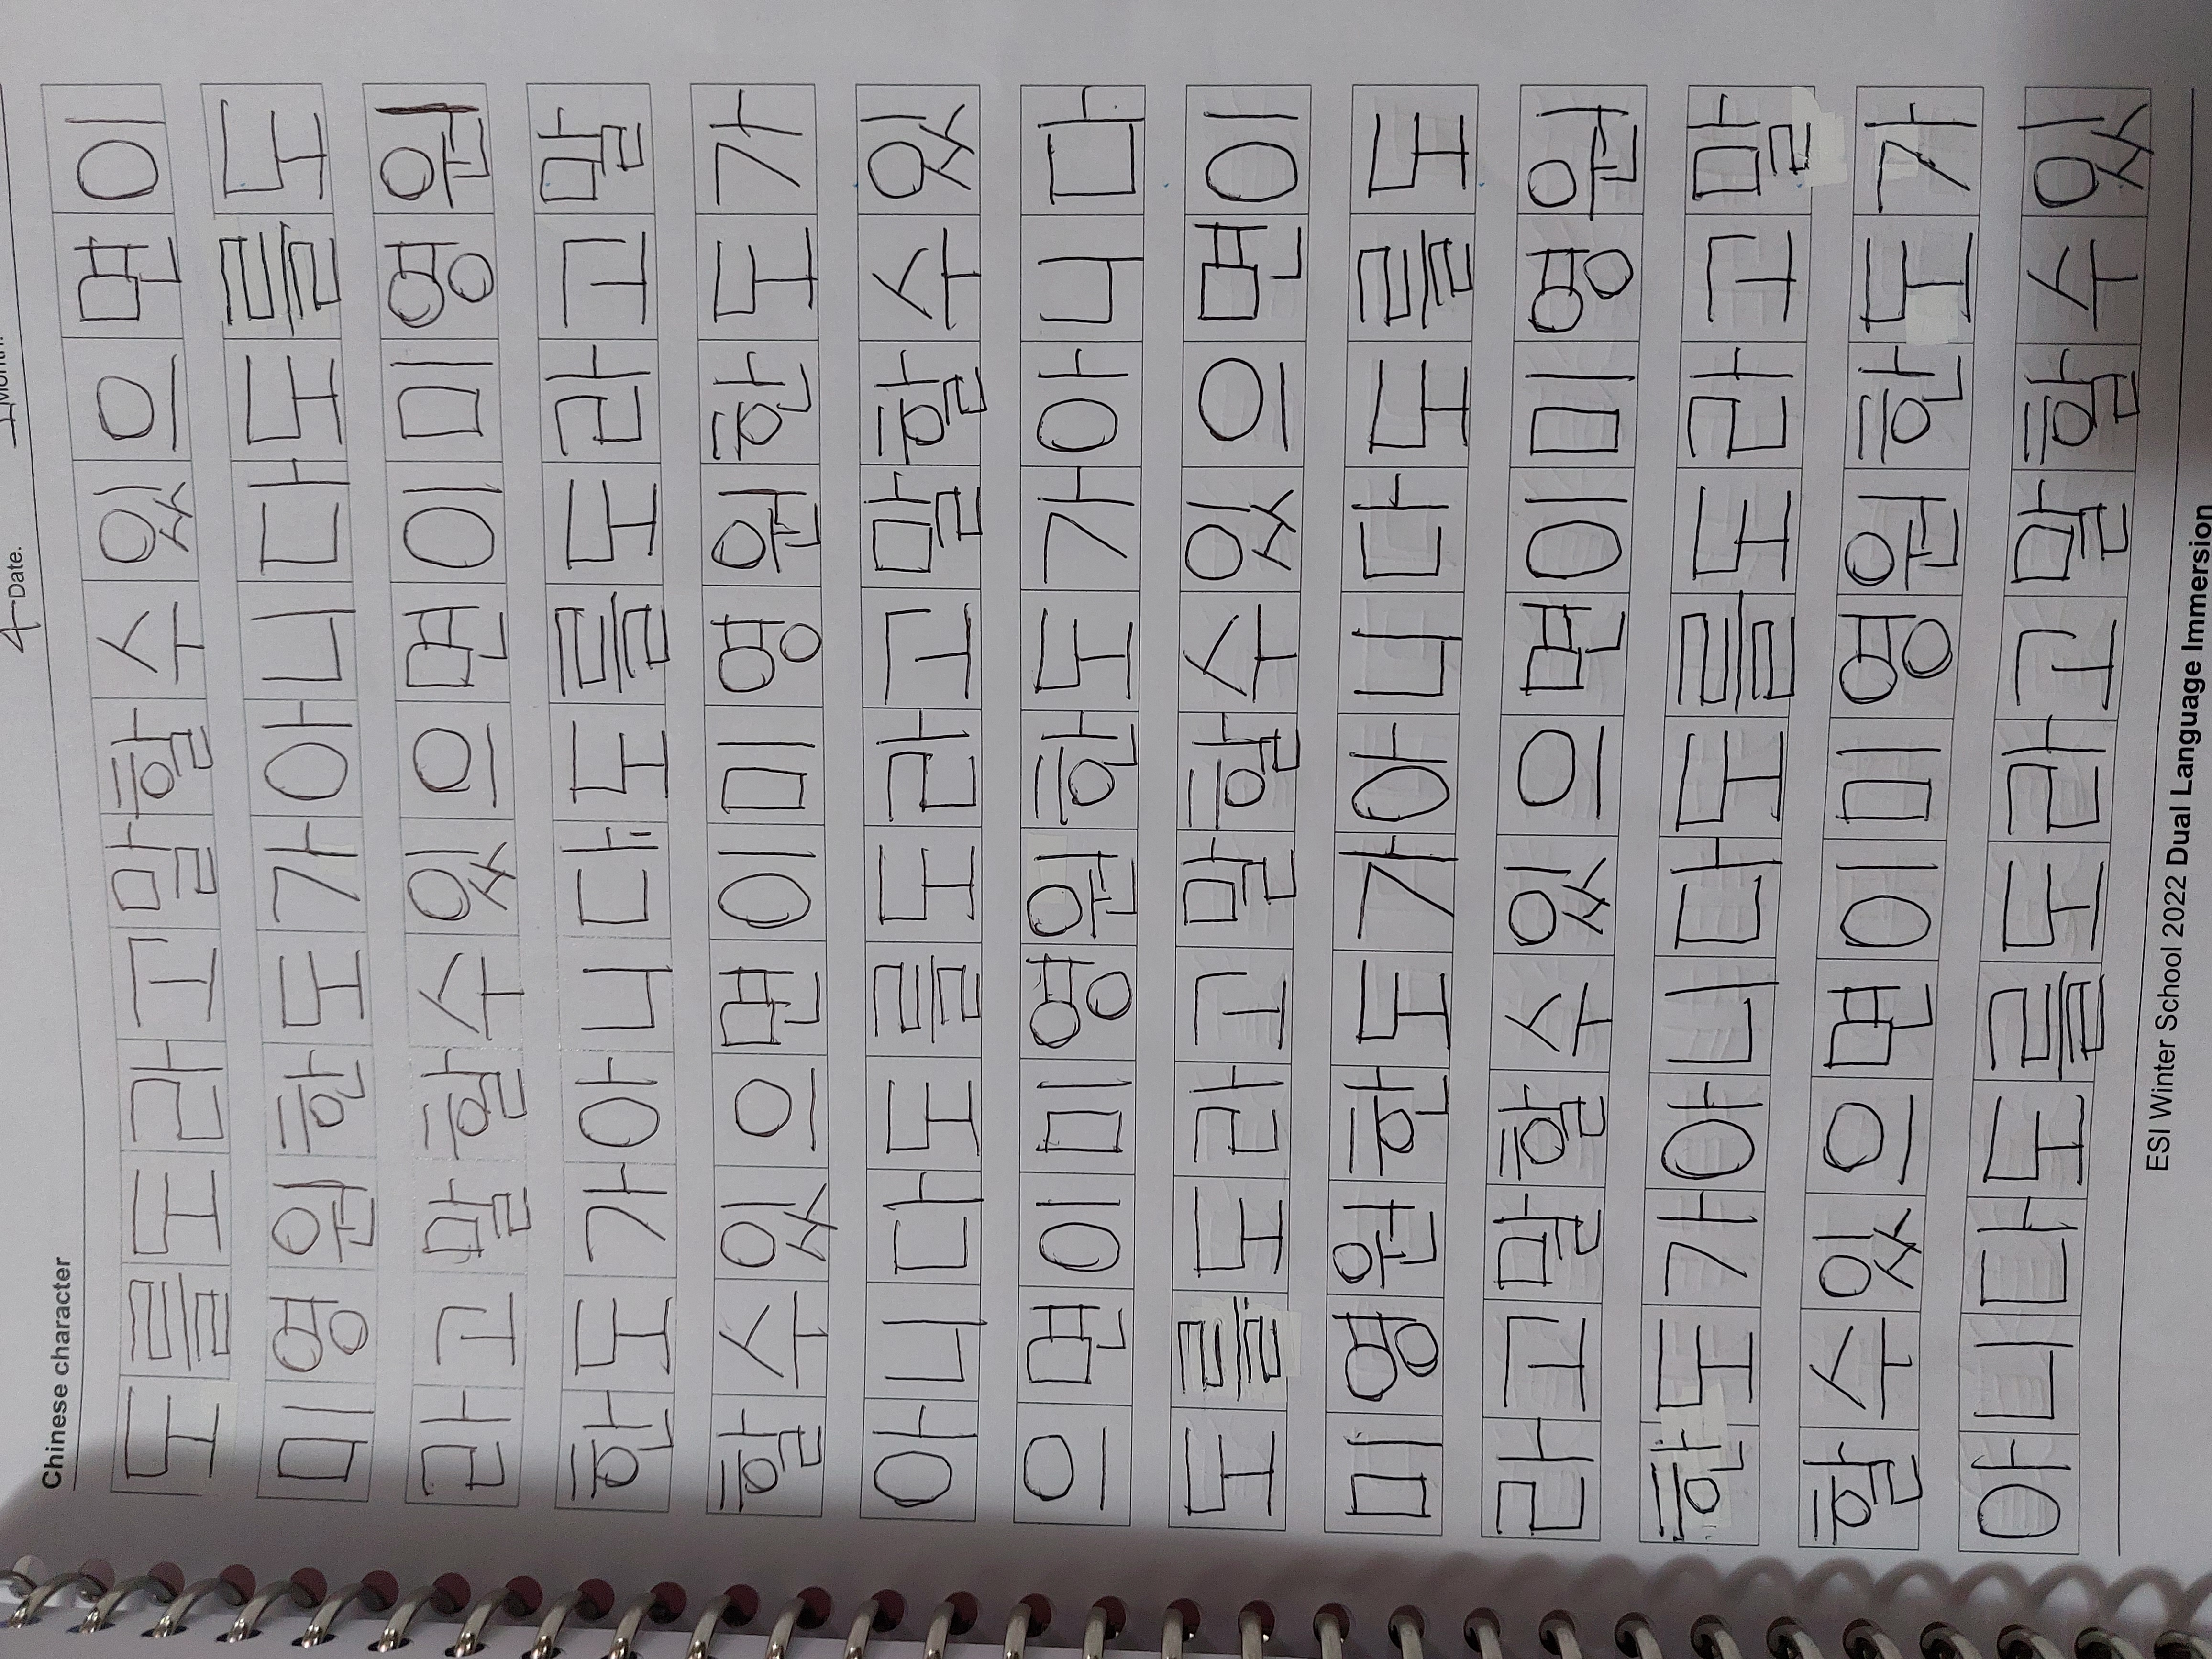 Month. 4 Date.
Chinese character
도를도라고말할수있으면이
미영원한도가아니다도를도
라고말할수있으면이미영원
한도가아니다도를도라고말
할수있으면이미영원한도가
아니다도를도라고말할수있
으면이미영원한도가아니다
도를도라고말할수있으면이
미영원한도가아니다도를도
라고말할수있으면이미영원
한도가아니다도를도라고말
할수있으면이미영원한도가
아니다도를도라고말할수있
ESI Winter School 2022 Dual Language Immersion